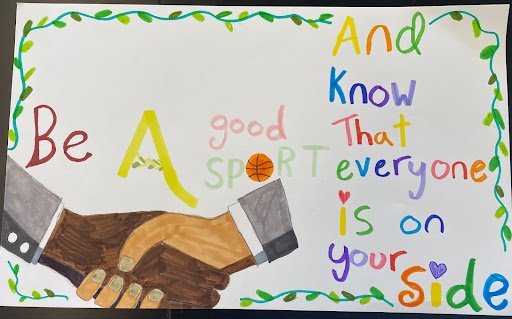 Be A good
SPORT
And
Know
That
everyone
is on
your
side